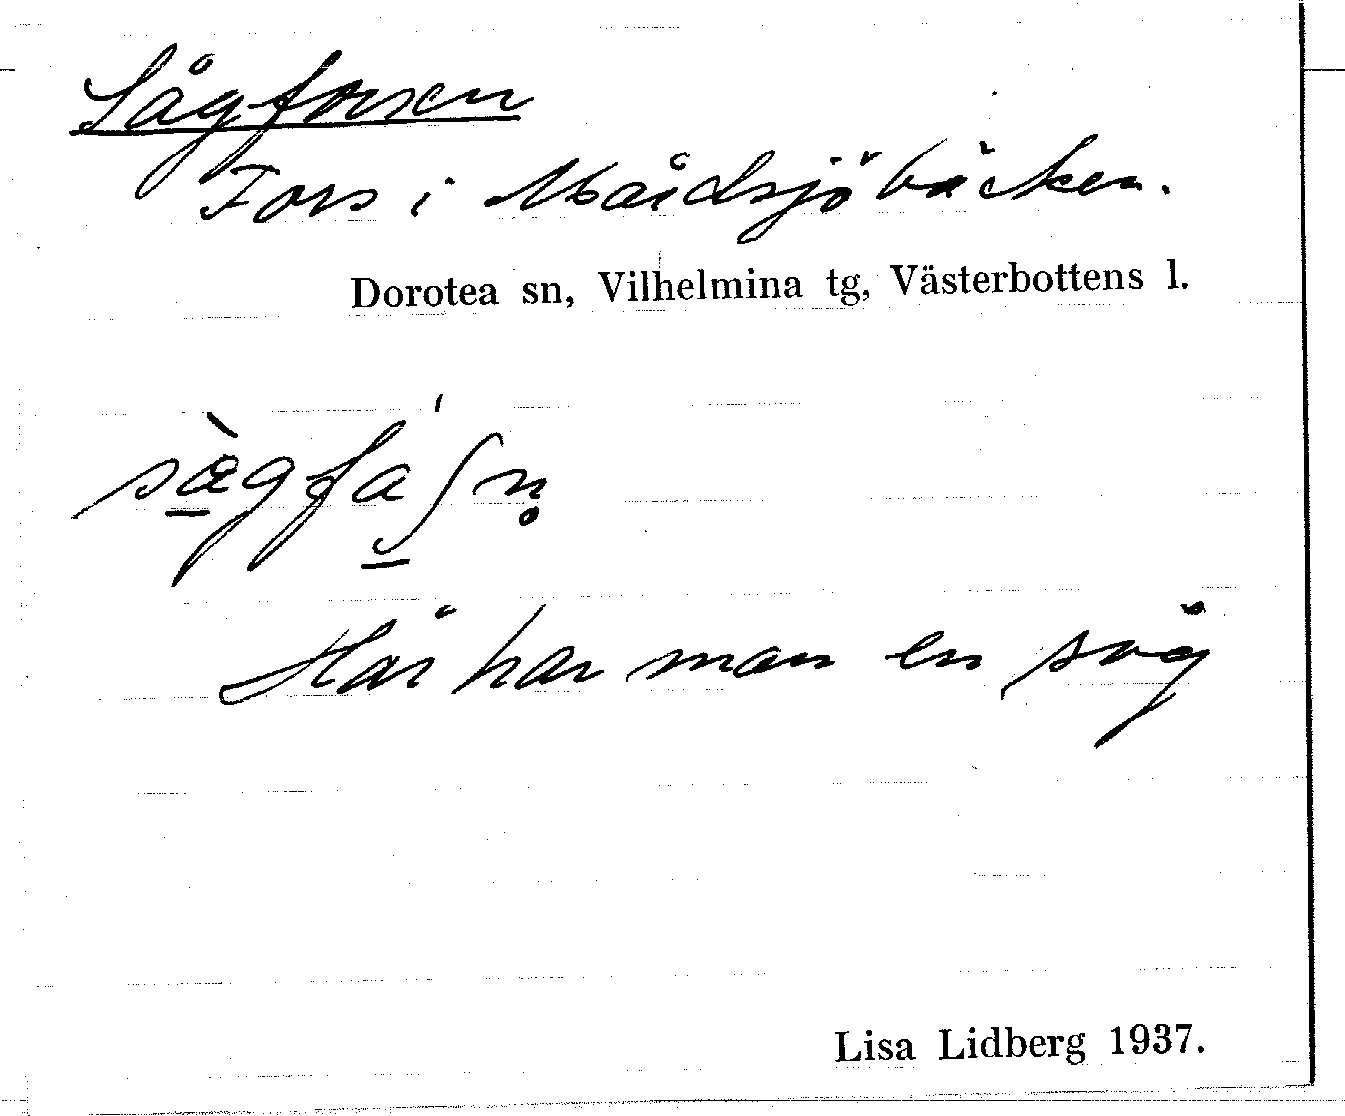 Sågforsen
Fors i Mårdsjöbäcken.
Dorotea sn, Vilhelmina tg, Västerbottens l.
Här har man en såg
Lisa Lidberg 1937.